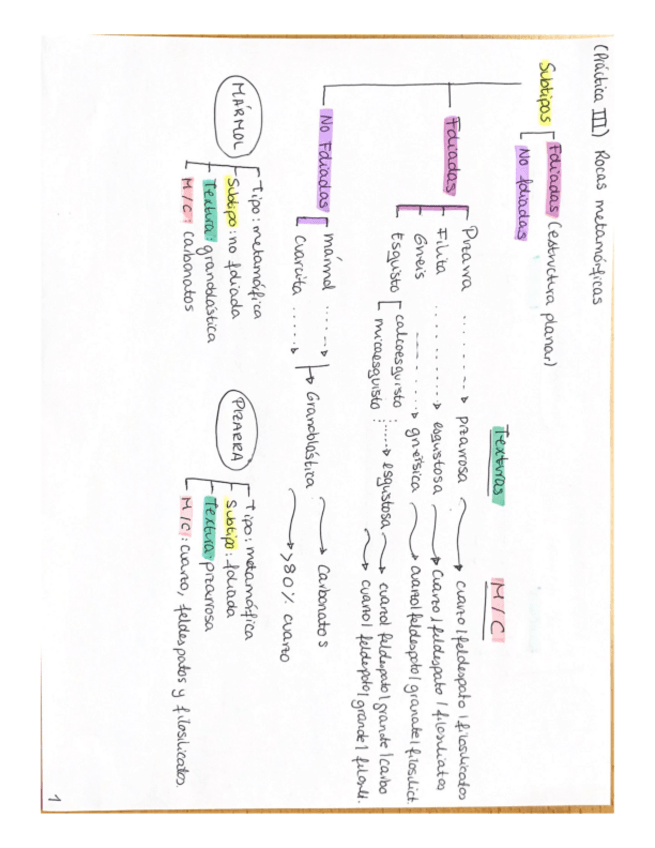 (Práctica III) Rocas metamórficas
Subtipos
Foliadas (estructura planar)
No foliadas
Texturas
M/C
Foliadas
Pizarra → pizarrosa → cuarzo/feldespato/filosilicatos
Filita → esquistosa → cuarzo/feldespato/filosilicatos
Gneis → gneísica → cuarzo/feldespato/granate/filosilict.
Esquisto
calcoesquisto
micaesquisto
→ esquistosa → cuarzo/feldespato/grande/carbo
→ cuarzo/feldespato/grande/filosilt.
No Foliadas
mármol
cuarcita
→ Granoblástica
→ carbonatos
→ >80% cuarzo
MÁRMOL
Tipo: metamórfica
Subtipo: no foliada
Textura: granoblástica
M/C: carbonatos
PIZARRA
Tipo: metamórfica
Subtipo: foliada
Textura: pizarrosa
M/C: cuarzo, feldespatos y filosilicatos.
1